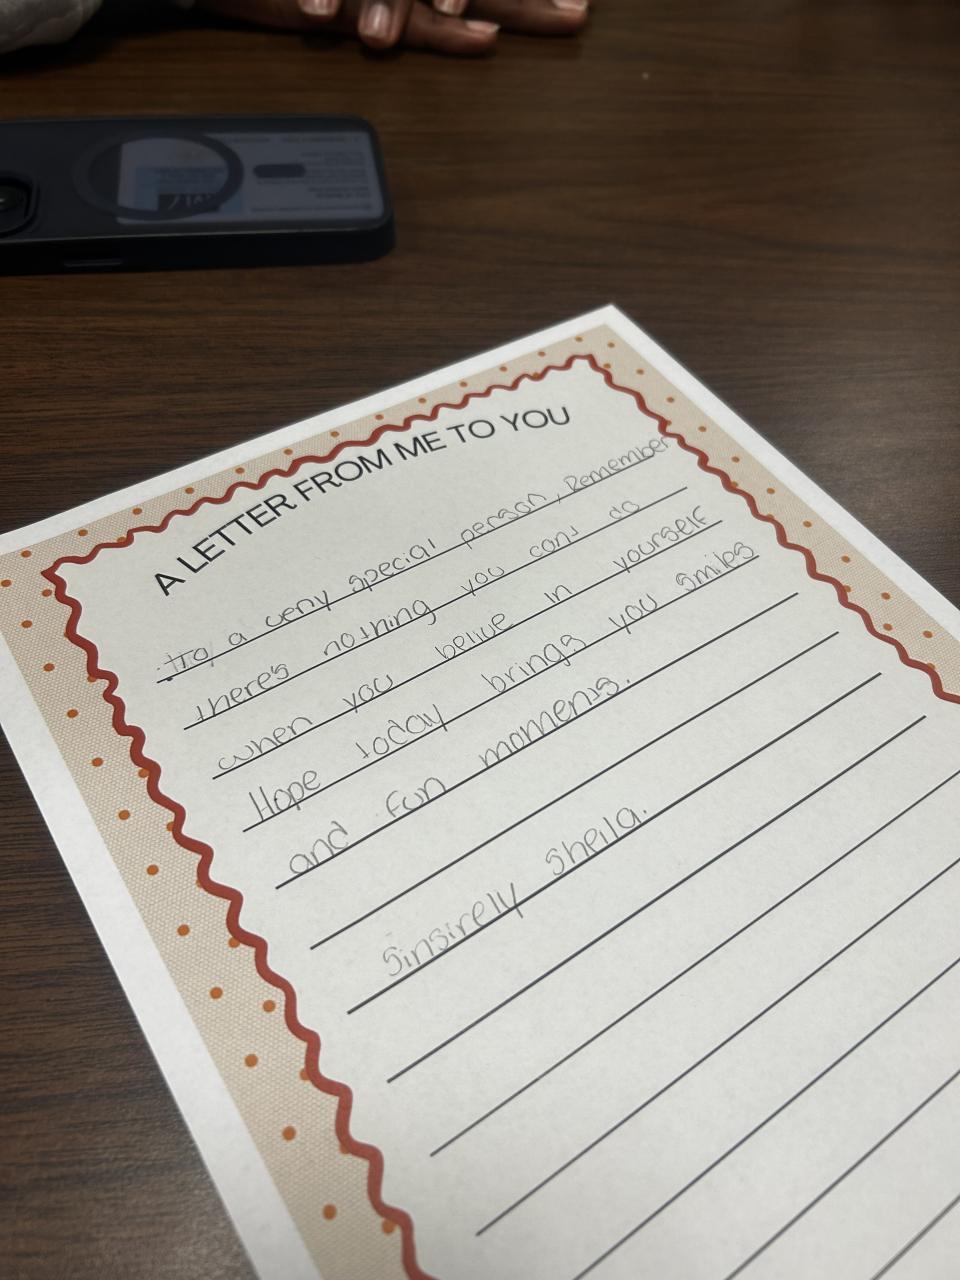 A LETTER FROM ME TO YOU
To a very special person, Remember
there's nothing you cant do
when you belive in yourself
Hope today brings you smiles
and fun moments.
Sinsirely Sheila.